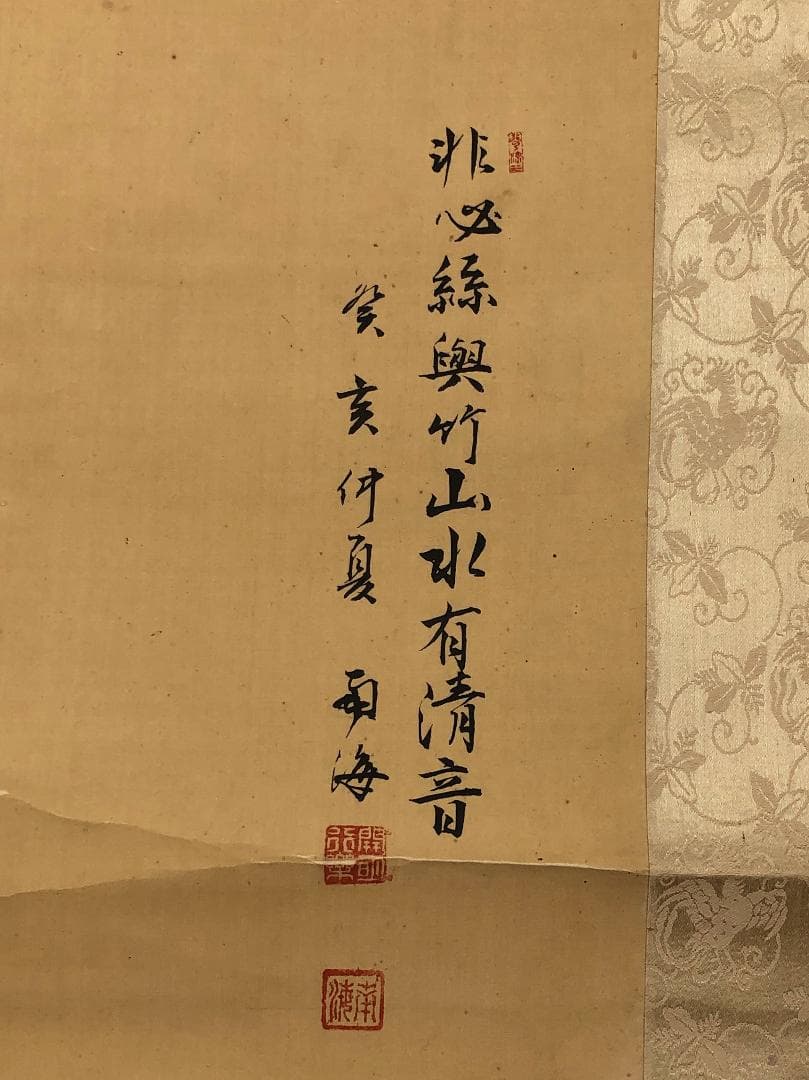 非必絲與竹山水有清音
癸亥仲夏 南海
南海